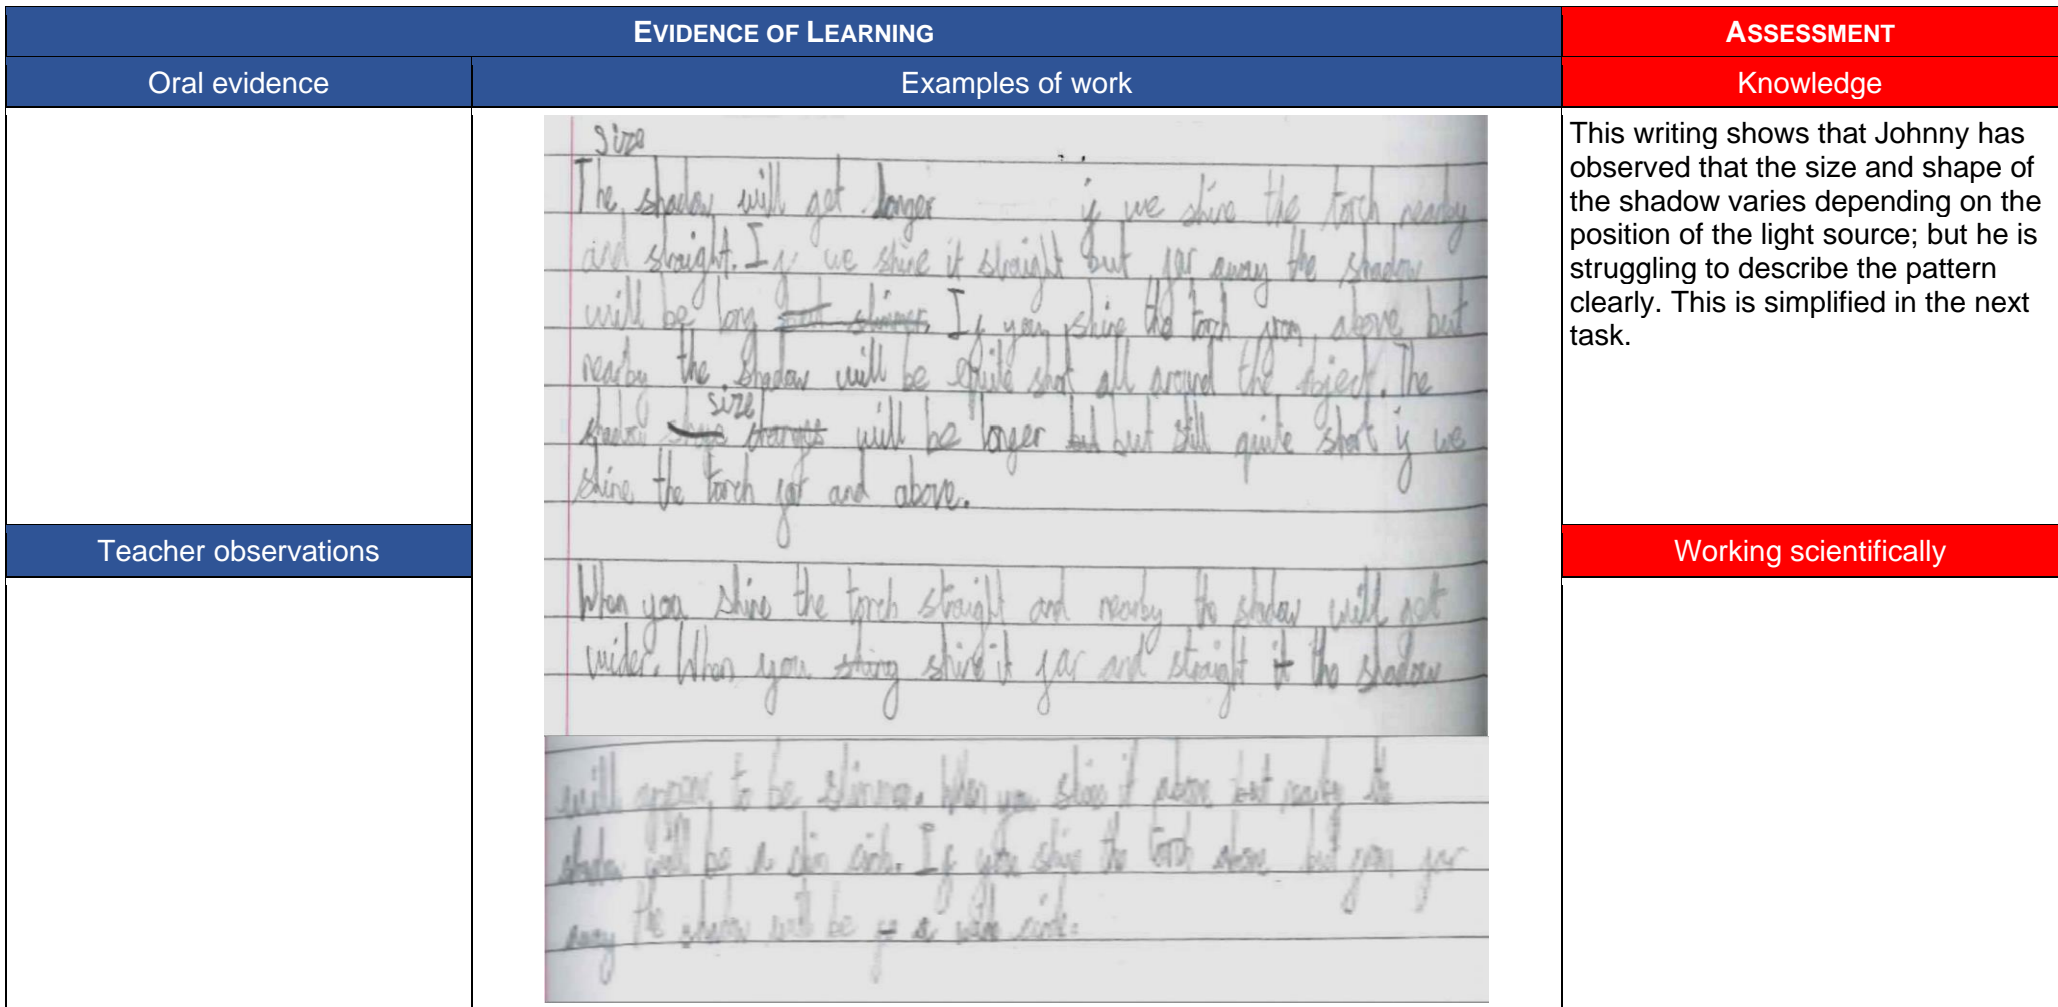 EVIDENCE OF LEARNING
ASSESSMENT
Oral evidence
Examples of work
Knowledge
size
The shadow will get longer if we shine the torch nearby
and straight. If we shine it straight but far away the shadow
will be long but slimmer. If you shine the torch from above but
nearby the shadow will be quite shot all around the object. The
size
shadow shape changes will be longer but but still quite short if we
shine the torch far and above.
When you shine the torch straight and nearby the shadow will get
wider. When you shing shine it far and straight it the shadow
will appear to be slimmer. When you shine it above but nearby the
shadow will be a slim circle. If you shine the torch above but from far
away the shadow will be a wide circle.
This writing shows that Johnny has
observed that the size and shape of
the shadow varies depending on the
position of the light source; but he is
struggling to describe the pattern
clearly. This is simplified in the next
task.
Teacher observations
Working scientifically